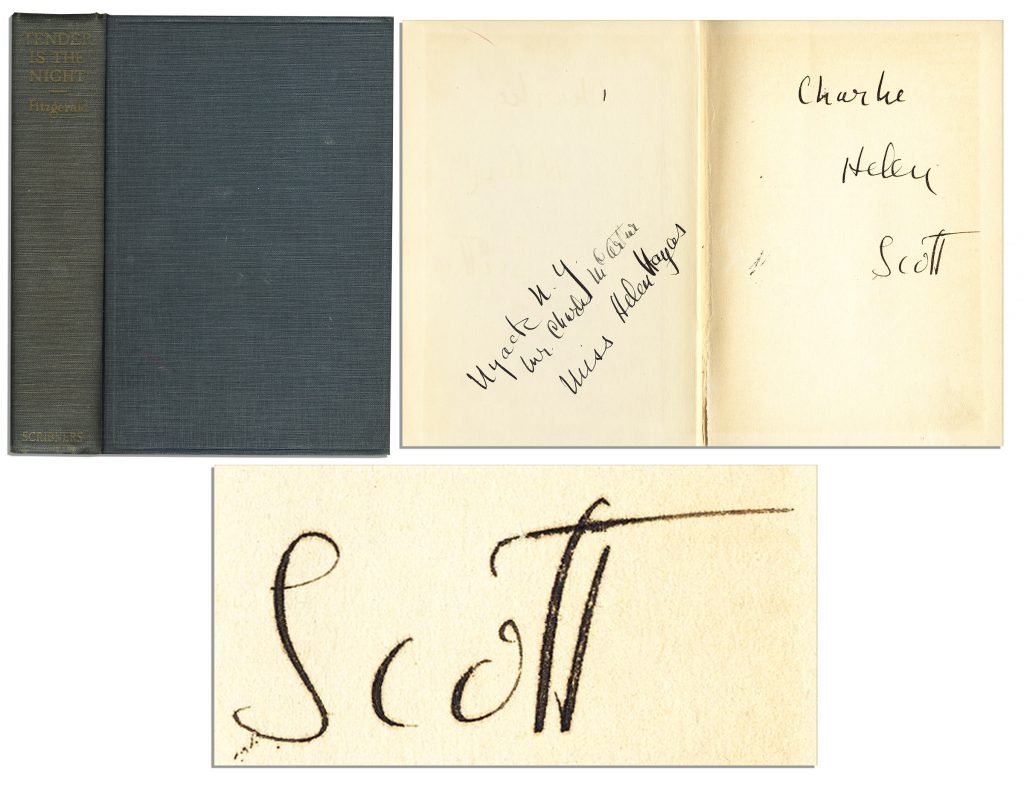 TENDER
IS THE
NIGHT
Fitzgerald
SCRIBNERS
Nyack N.Y.
Mr Charles McArtur
Miss Helen Hayes
Charlie
Helen
Scott
Scott